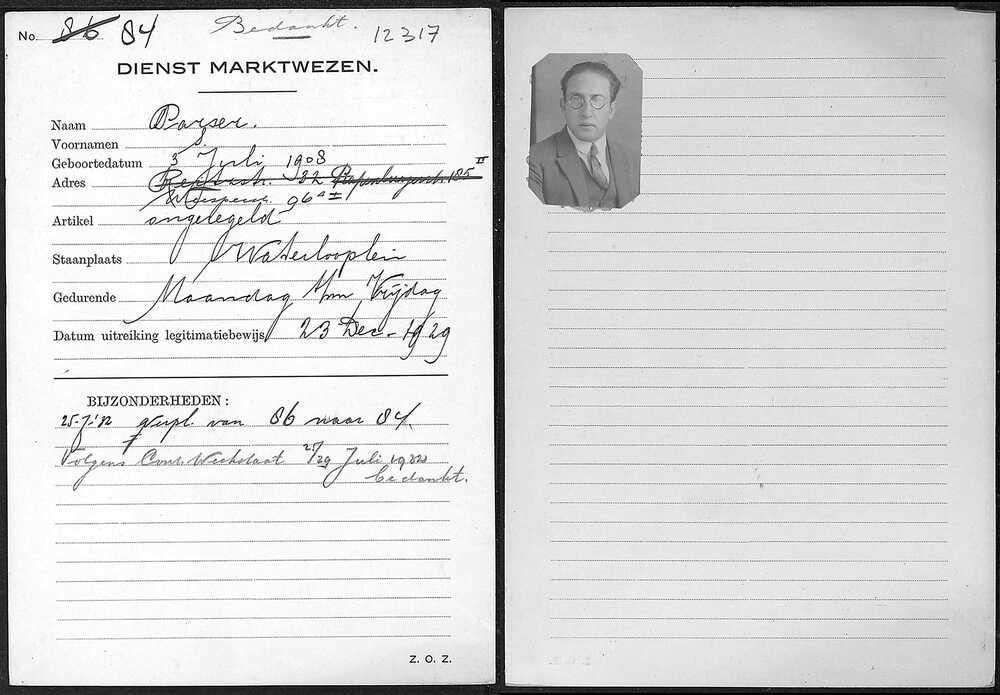 No. 86 84 Bedankt. 12317
DIENST MARKTWEZEN.
Naam Parser.
Voornamen S.
Geboortedatum 3 Juli 1908
Adres 82 Papenburgerstr. 185 II
96 a I
Artikel ongeregeld
Staanplaats Waterlooplein
Gedurende Maandag t/m Vrijdag
Datum uitreiking legitimatiebewijs 23 Dec - 1929
BIJZONDERHEDEN:
25-7-'32 verpl. van 86 naar 84.
Volgens Cont. Weekstaat 25/29 Juli 1932
bedankt.
Z. O. Z.